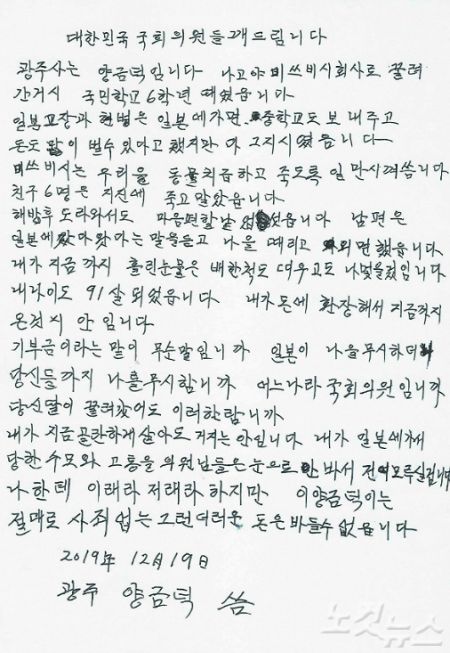 대한민국 국회의원들개드림니다
광주사는 양금덕입니다 나고야 미쓰비시회사로 끌려
간거시 국민학교 6학년 때였읍니다
일본교장과 헌병은 일본에가면 중학교도 보내주고
돈도 많이 벌수있다고 했지만 다 그지시였읍니다
미쓰비시는 우리을 동물취급하고 죽도록 일만시켜씀니다
친구 6명은 지진에 죽고 말았읍니다
해방후 도라와서도 마음편할날 업섯읍니다 남편은
일본에갔다왔다는 말을듣고 나을 때리고 외면했읍니다
내가 지금까지 흘린눈물은 배한척도 띄우고도 남멋을렀입니다
내나이도 91살되었읍니다 내가 돈에 환장해서 지금까지
온것시 안입니다
기부금이라는 말이 무순말입니까 일본이 나을무시하더니
당신들까지 나를무시함니까 어느나라 국회의원입니까
당신딸이 끌려갔어도 이러한람니까
내가 지금곤란하게살아도 거지는 안입니다 내가 일본에가서
당한 수모와 고통을 의원님들은 눈으로 안바서 전여모루실겁니다
나한테 이래라 저래라 하지만 이양금덕이는
절때로 사죄업는 그런더러운 돈은바들수 없읍니다
2019年 12月19日
광주 양금덕 씀
노컷뉴스